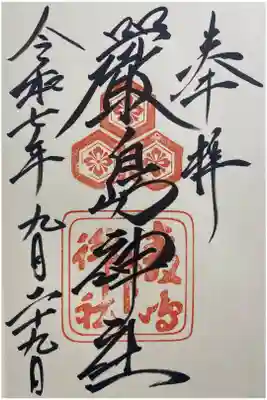 奉拝
嚴島神社
令和七年 九月二十九日